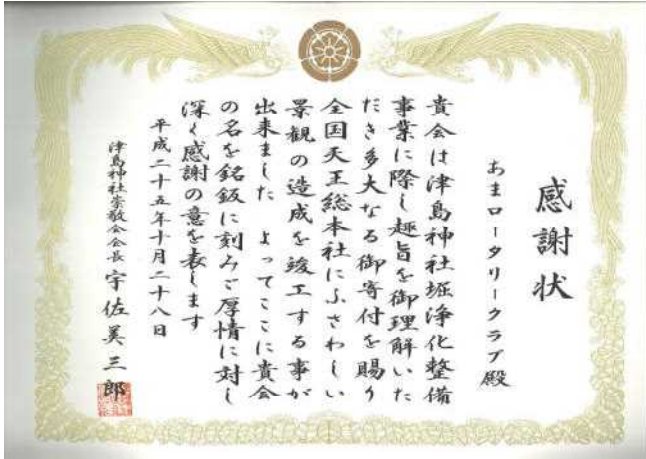 感謝状
あまロータリークラブ殿
貴会は津島神社堀浄化整備
事業に際し趣旨を御理解いた
だき多大なる御寄付を賜り
全国天王総本社にふさわしい
景観の造成を竣工する事が
出来ました よってここに貴会
の名を銘鈑に刻みご厚情に対し
深く感謝の意を表します
平成二十五年十月二十八日
津島神社崇敬会会長 宇佐美三郎